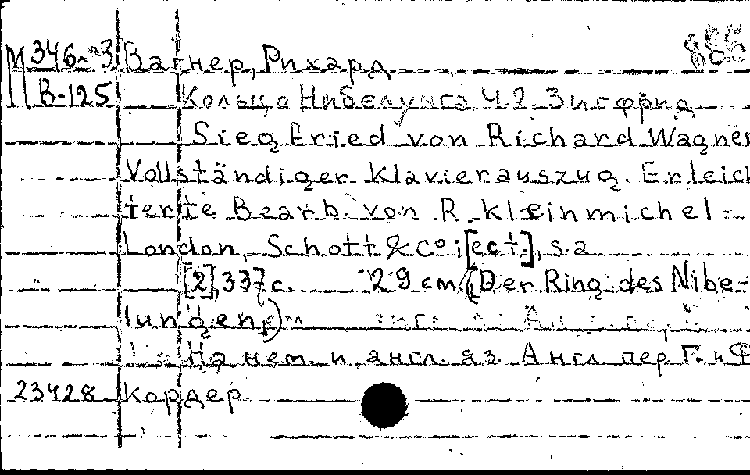 М 346-3 Вагнер, Рихард
В-125 Кольцо Нибелунга Ч. 2. Зигфрид
Siegfried von Richard Wagner
Vollständiger Klavierauszug. Erleich-
terte Bearb. von R. Kleinmichel.-
London, Schott & Co; [ect.], s.a
[2], 337 с. 29 см. (Der Ring des Nibe-
lungen)
На нем. и англ. яз. Англ пер Г. и Ф
23428 Кордер